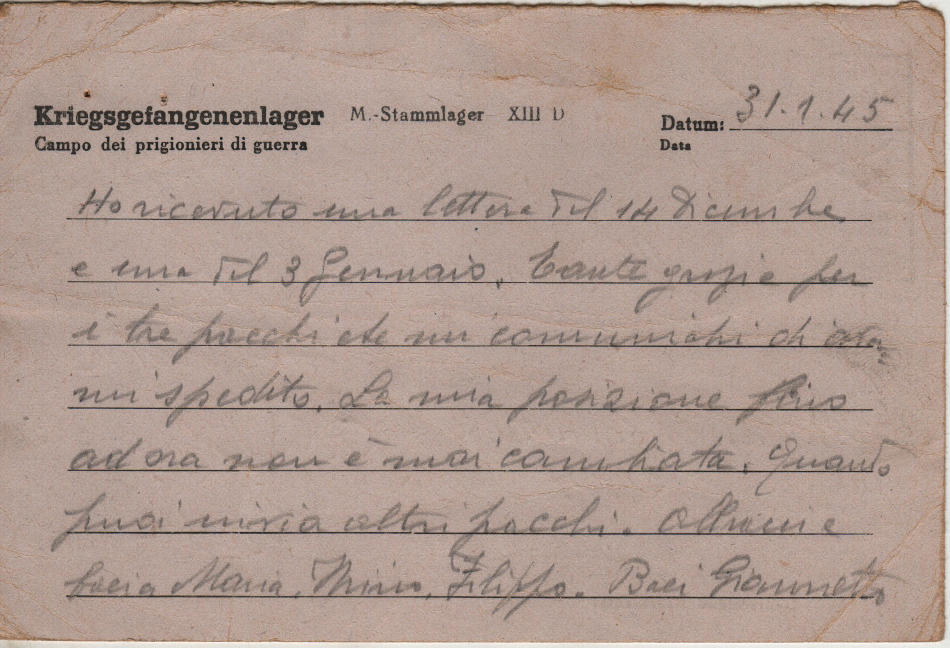 Kriegsgefangenenlager M.-Stammlager XIII D Datum: 31.1.45
Campo dei prigionieri di guerra Data
Ho ricevuto una lettera del 14 Dicembre
e una del 3 Gennaio. Tante grazie per
i tre pacchi che mi comunichi di
mi spedito. La mia posizione fino
ad ora non è mai cambiata. Quando
puoi invia altri pacchi.
bacia Maria, Mimo, Filippo. Baci Giannetto